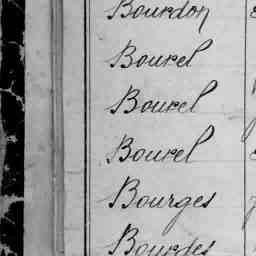 Bourdon
Bourel
Bourel
Bourel
Bourges
Bourdes